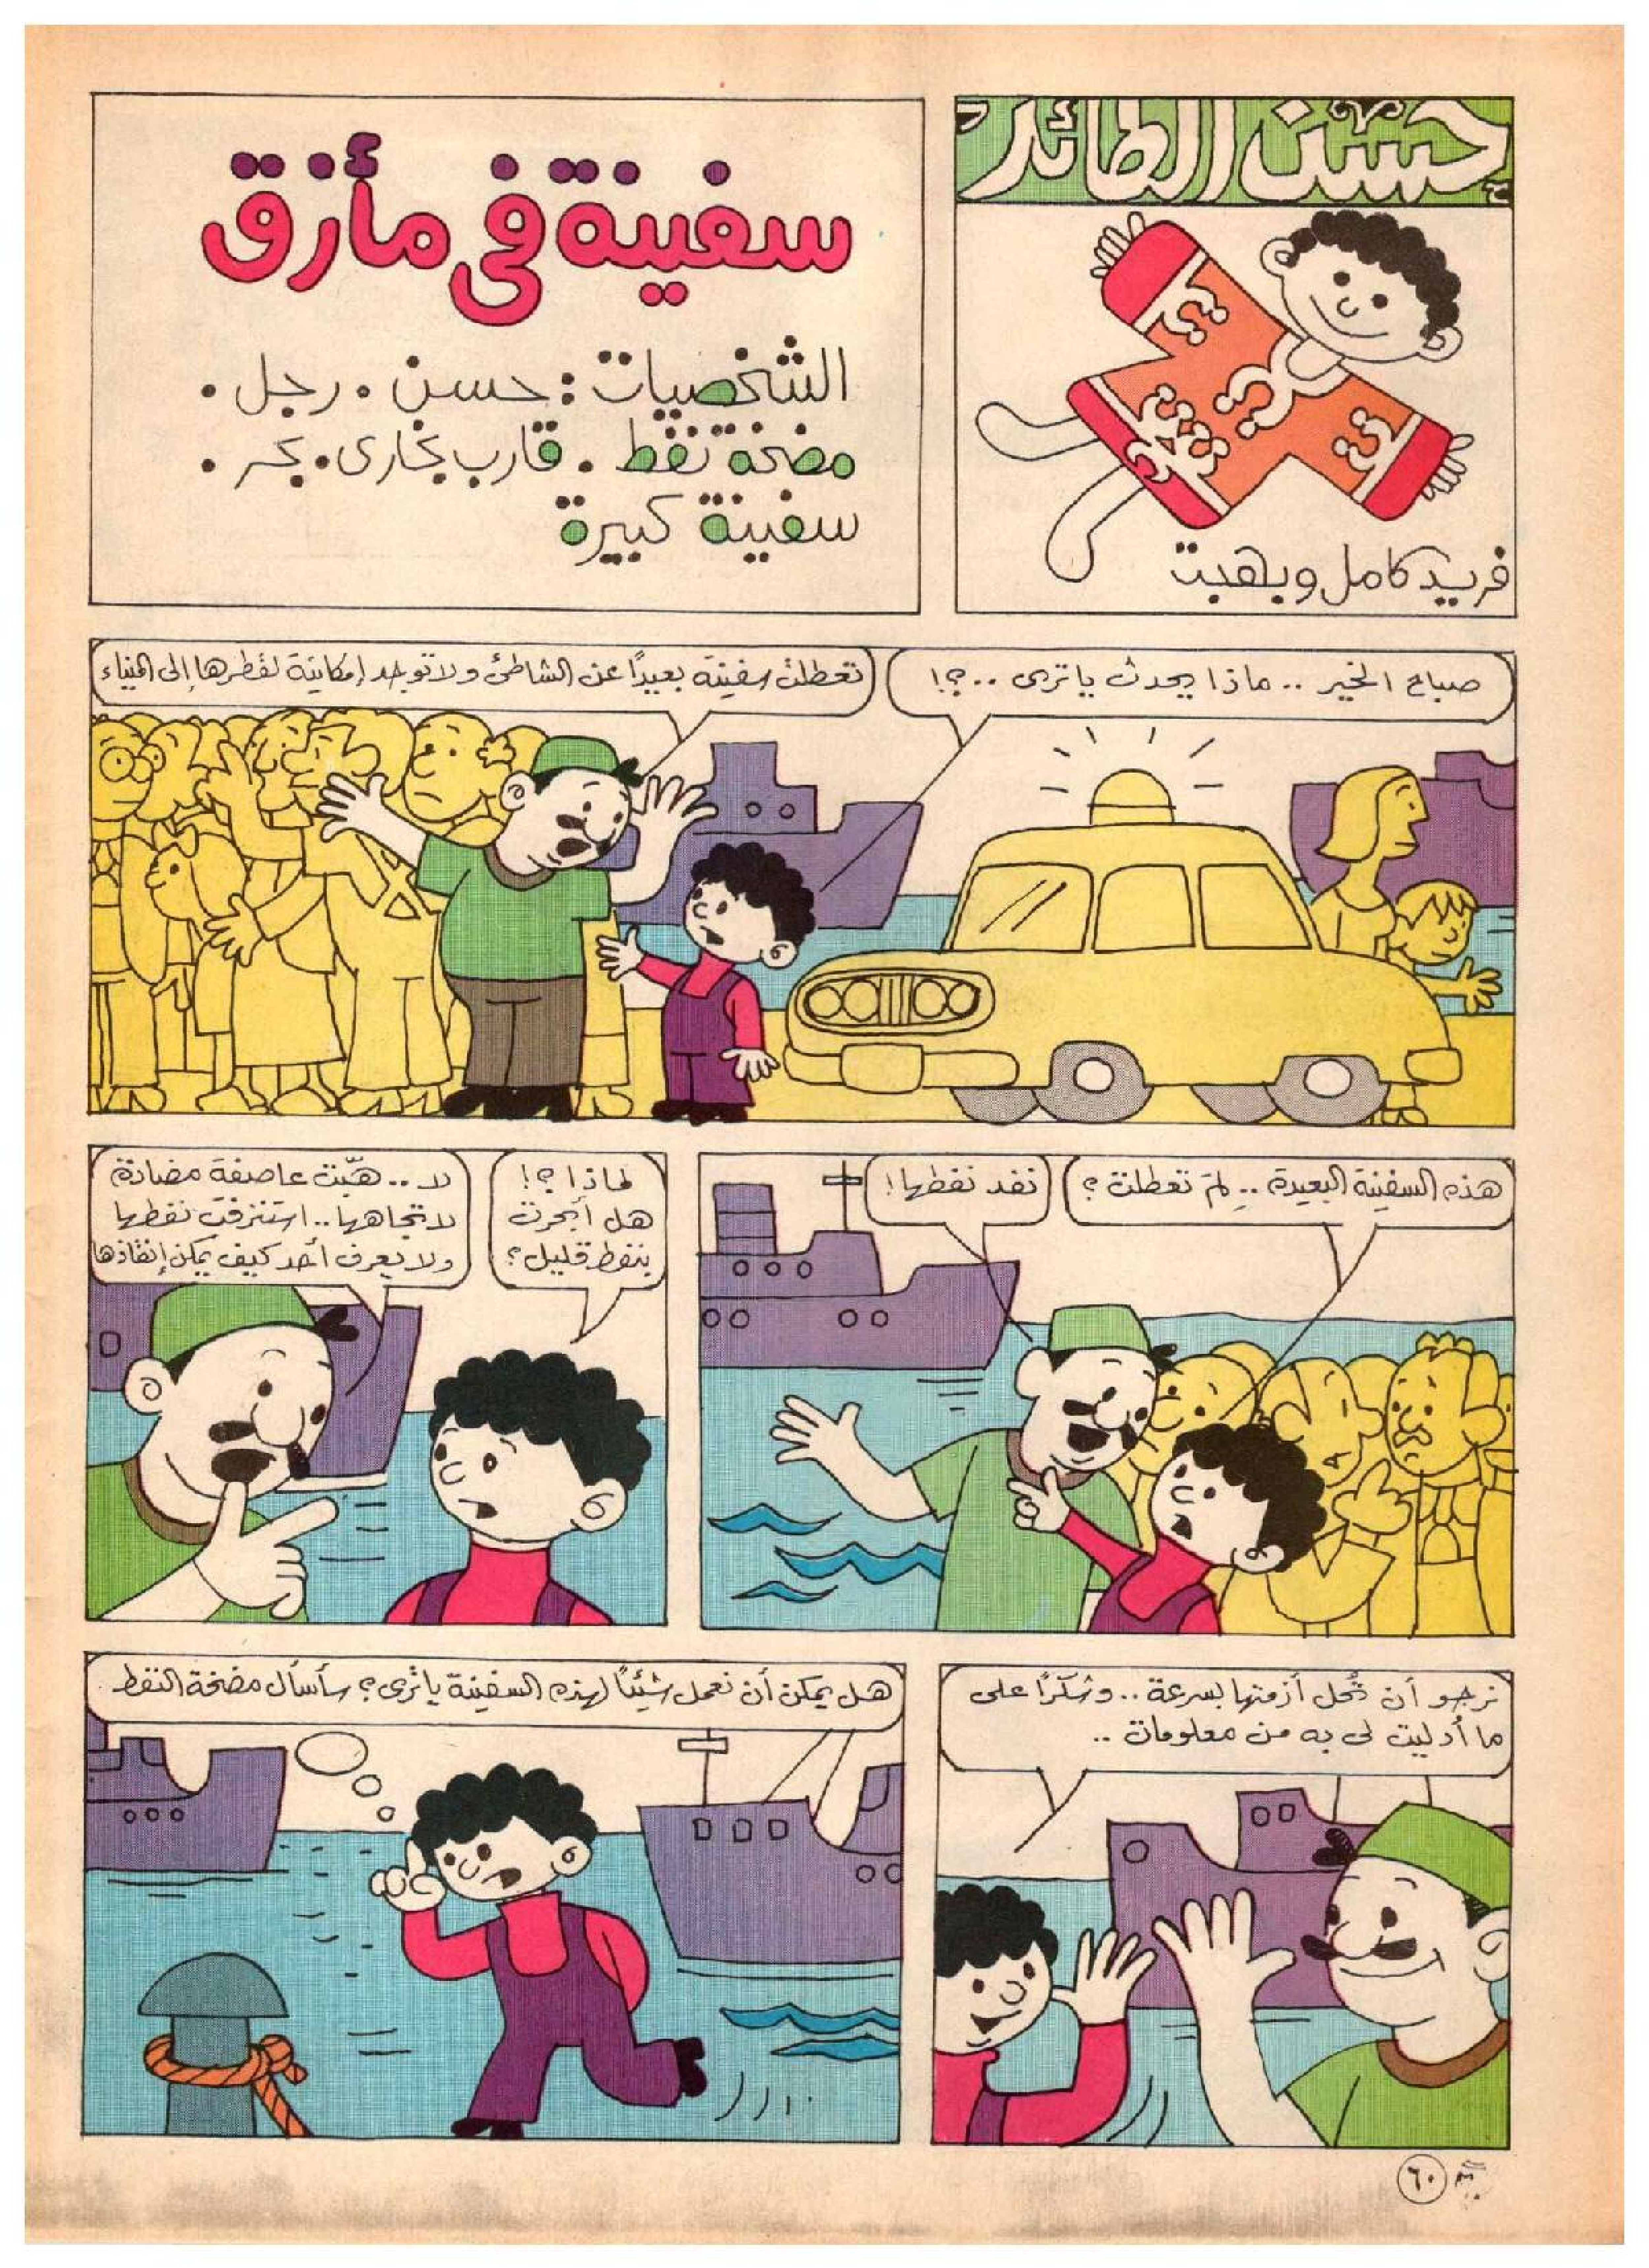 حسن الطائر
فريد كامل وبهجت
سفينة فى مأزق
الشخصيات : حسن . رجل .
مضخة نفط . قارب بخارى . بحر .
سفينة كبيرة
صباح الخير .. ماذا يحدث ياترى ..؟!
تعطلت سفينة بعيداً عن الشاطئ ولا توجد إمكانية لقطرها إلى الميناء
هذه السفينة البعيدة .. لِمَ تعطلت ؟
نفد نفطها !
لماذا ؟!
هل أبحرت
بنفط قليل ؟
لا .. هبّت عاصفة مضادة
لاتجاهها .. استنزفت نفطها
ولا يعرف أحد كيف يمكن إنقاذها
نرجو أن تُحل أزمتها بسرعة .. وشكراً على
ما أدليت لى به من معلومات ..
هل يمكن أن نعمل شيئاً لهذه السفينة ياتُرى ؟ سأسأل مضخة النفط
٦٠